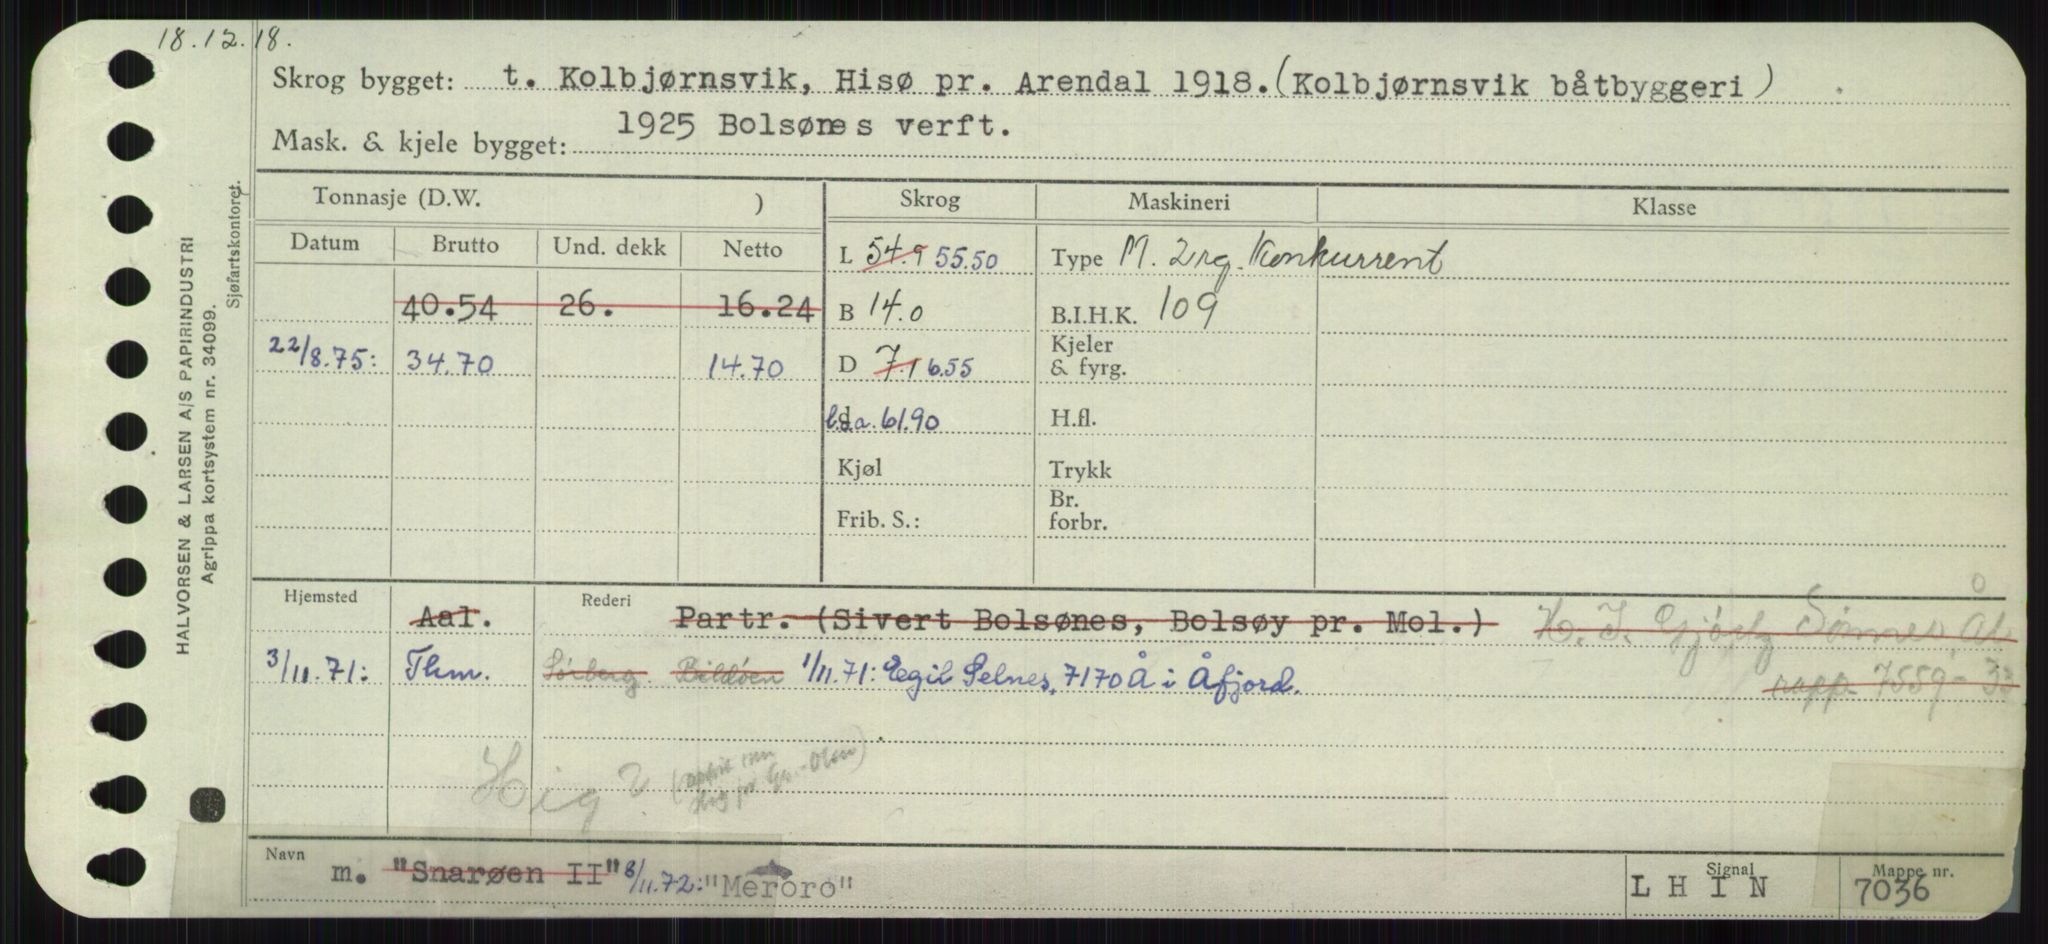 18.12.18.
Skrog bygget: t. Kolbjørnsvik, Hisø pr. Arendal 1918. (Kolbjørnsvik båtbyggeri)
Mask. & kjele bygget: 1925 Bolsønes verft.
Tonnasje (D.W. ) Skrog Maskineri Klasse
Datum Brutto Und. dekk Netto L 54.9 55.50 Type M. 2 rg. Konkurrent
40.54 26. 16.24 B 14.0 B.I.H.K. 109
22/8.75: 34.70 14.70 D 7.1 6.55 Kjeler & fyrg.
l.o.a. 61.90 H.fl.
Kjøl Trykk
Frib. S.: Br. forbr.
Hjemsted Aal. Rederi Partr. (Sivert Bolsønes, Bolsøy pr. Mol.) H. J.
3/11.71: Thm. 1/11.71: Egil Selnes, 7170 Å i Åfjord. rapp. 7559-33
Hig ?
Navn m. "Snarøen II" 8/11.72: "Meroro" Signal LHIN Mappe nr. 7036
HALVORSEN & LARSEN A/S PAPIRINDUSTRI
Agrippa kortsystem nr. 34099.
Sjøfartskontoret.